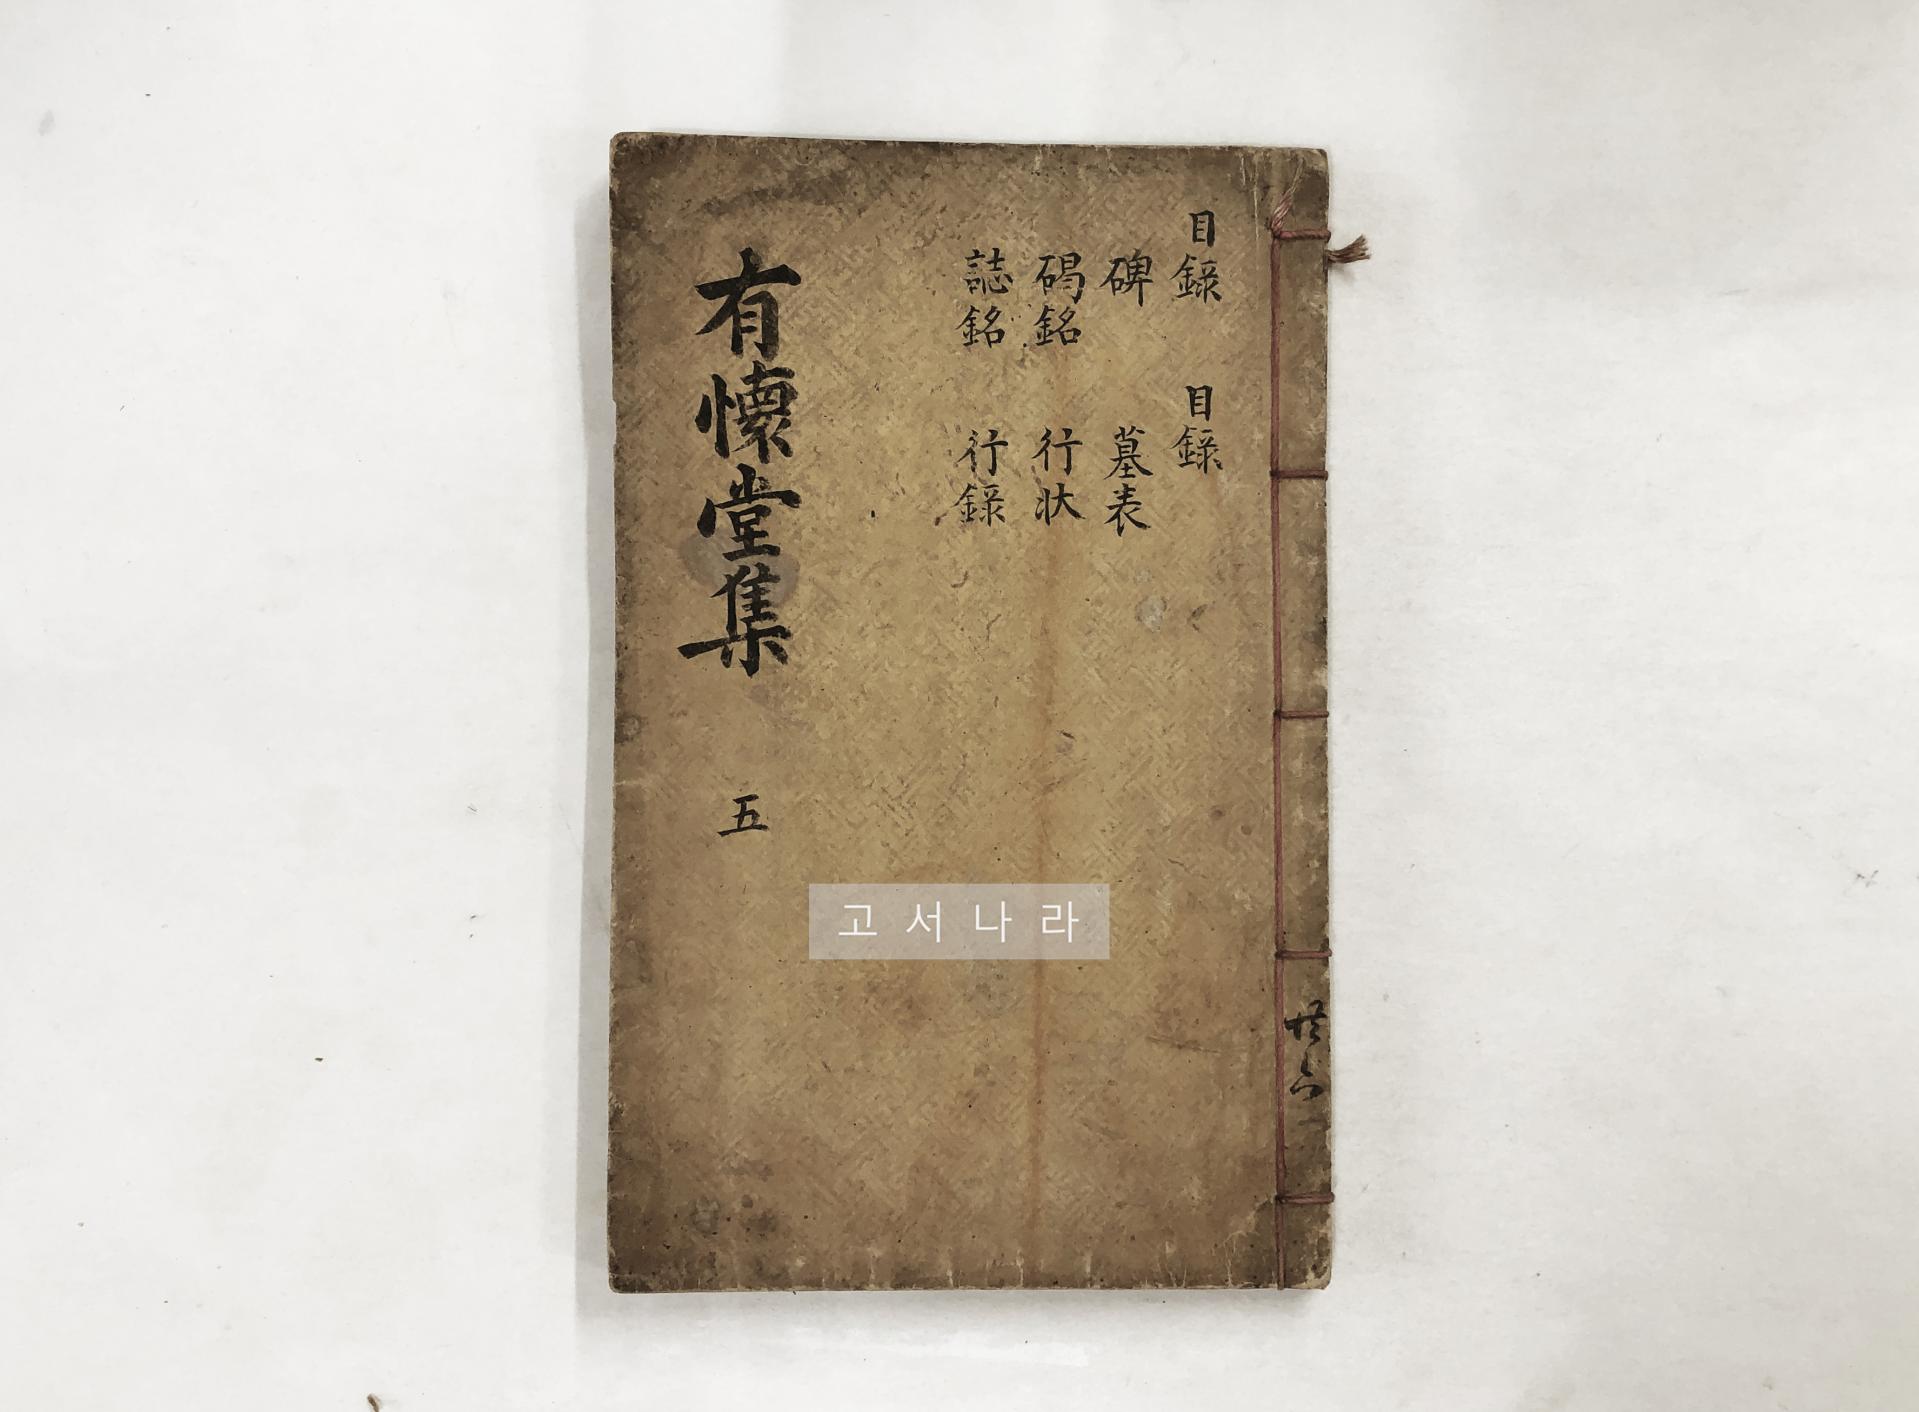 目錄 目錄
碑 墓表
碣銘 行狀
誌銘 行錄
有懷堂集 五
고서나라